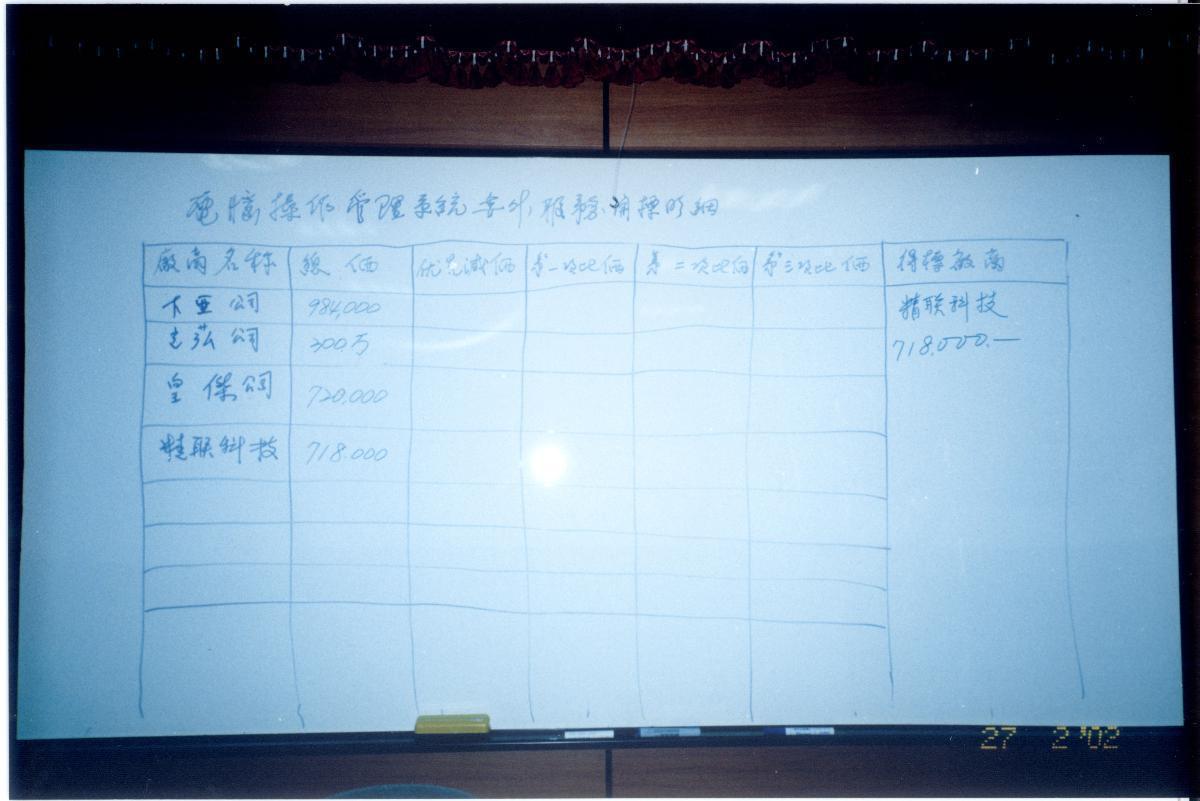 電腦操作管理系統委外服務開標明細
廠商名称 總価 优先減価 第一次比価 第二次比価 第三次比価 得標廠商
卡亚公司 984,000 精联科技
志弘公司 300万 718.000.—
皇傑公司 720,000
精联科技 718.000
27 2 '02